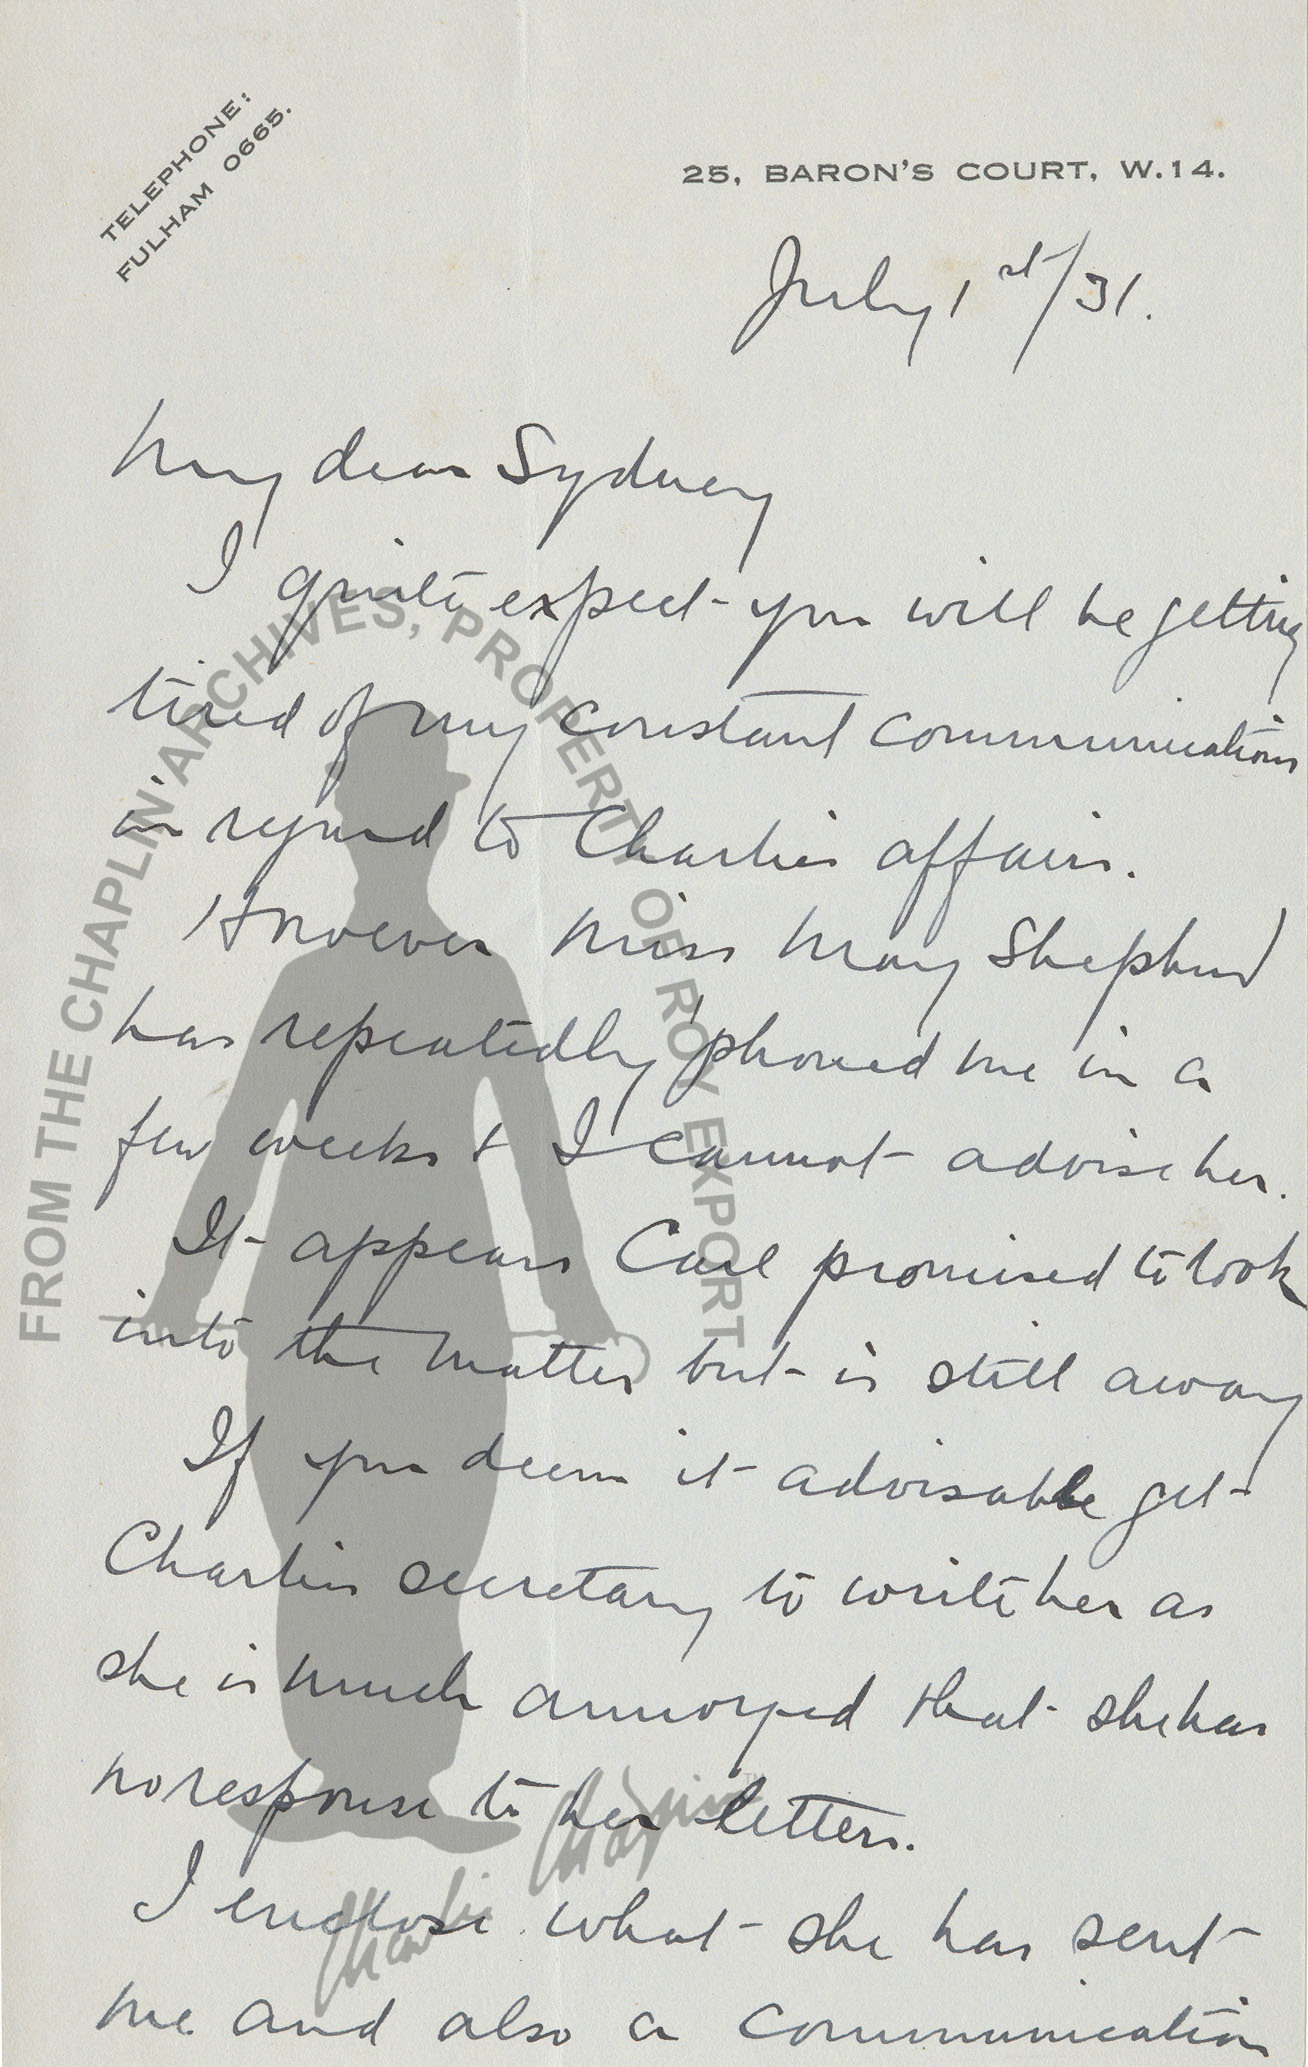 TELEPHONE:
FULHAM 0665.
25, BARON'S COURT, W.14.
July 1st/31.
My dear Sydney
I quite expect you will be getting
tired of my constant communications
in regard to Charlies affairs.
However Miss May Shepherd
has repeatedly 'phoned me in a
few weeks & I cannot advise her.
It appears Carl promised to look
into the matter but is still away
If you deem it advisable get
Charlies secretary to write her as
she is much annoyed that she has
no response to her letters.
I enclose what she has sent
me and also a communication
FROM THE CHAPLIN ARCHIVES, PROPERTY OF ROY EXPORT
Charlie Chaplin™